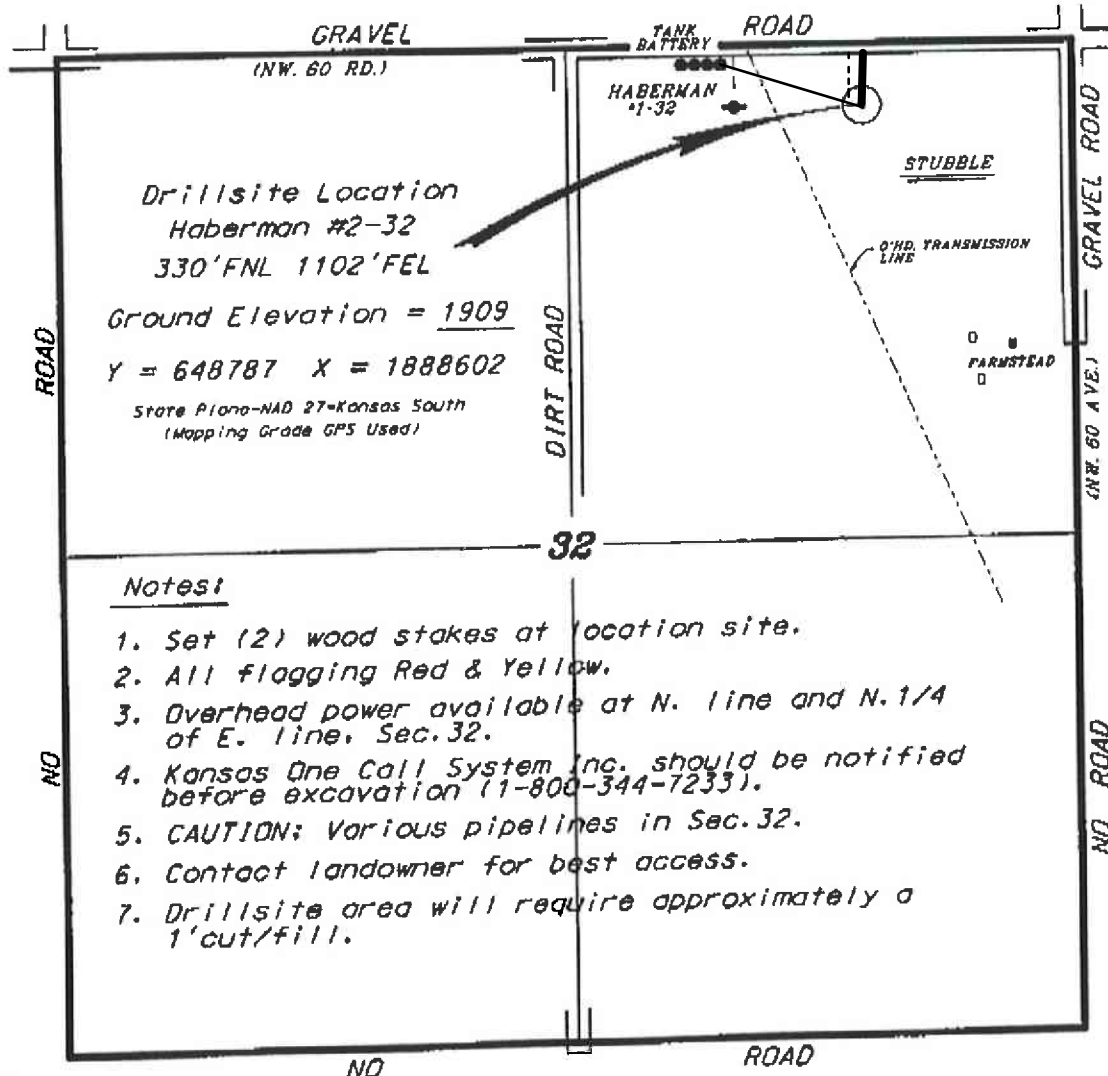 GRAVEL ROAD
(NW. 60 RD.)
TANK
BATTERY
HABERMAN
#1-32
STUBBLE
O'HD. TRANSMISSION
LINE
FARMSTEAD
GRAVEL ROAD
(NW. 60 AVE.)
Drillsite Location
Haberman #2-32
330'FNL 1102'FEL
Ground Elevation = 1909
Y = 648787 X = 1888602
State Plane-NAD 27=Kansas South
(Mapping Grade GPS Used)
DIRT ROAD
32
Notes:
1. Set (2) wood stakes at location site.
2. All flagging Red & Yellow.
3. Overhead power available at N. line and N.1/4
of E. line, Sec.32.
4. Kansas One Call System Inc. should be notified
before excavation (1-800-344-7233).
5. CAUTION: Various pipelines in Sec.32.
6. Contact landowner for best access.
7. Drillsite area will require approximately a
1'cut/fill.
NO ROAD
NO ROAD
NO ROAD